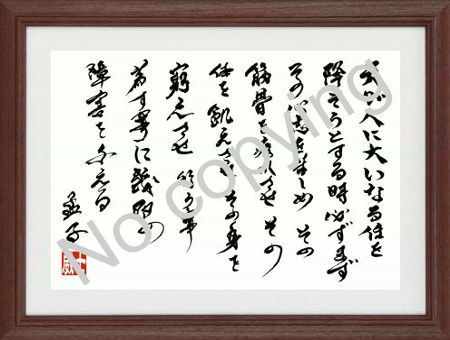 天が人に大いなる任を
降そうとする時必ずまず
その心志を苦しめ その
筋骨を疲れさせ その
体を飢えさせ その身を
窮乏させ
為す事に の
障害を与える
孟子
No copying